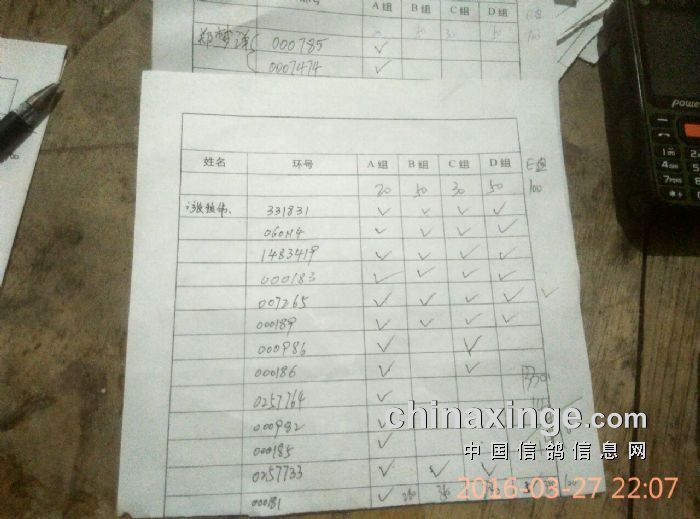 A组 B组 C组 D组
000785 ✓
0007474 ✓
姓名 环号 A组 B组 C组 D组
20 50 30 50 100
331831 ✓ ✓ ✓ ✓
✓ ✓ ✓ ✓
1483419 ✓ ✓ ✓ ✓
000183 ✓ ✓ ✓ ✓
007265 ✓ ✓ ✓ ✓ ✓
000189 ✓ ✓ ✓ ✓
000986 ✓ ✓
000186 ✓ ✓
0257764 ✓
000982 ✓
000185 ✓
0257733 ✓ ✓ ✓
000181 ✓
chinaxinge.com
中国信鸽信息网
2016-03-27 22:07